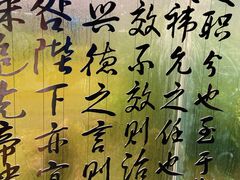 职分也至于
祎允之任也
效不效则治
兴德之言则
咎陛下亦宜
追先帝